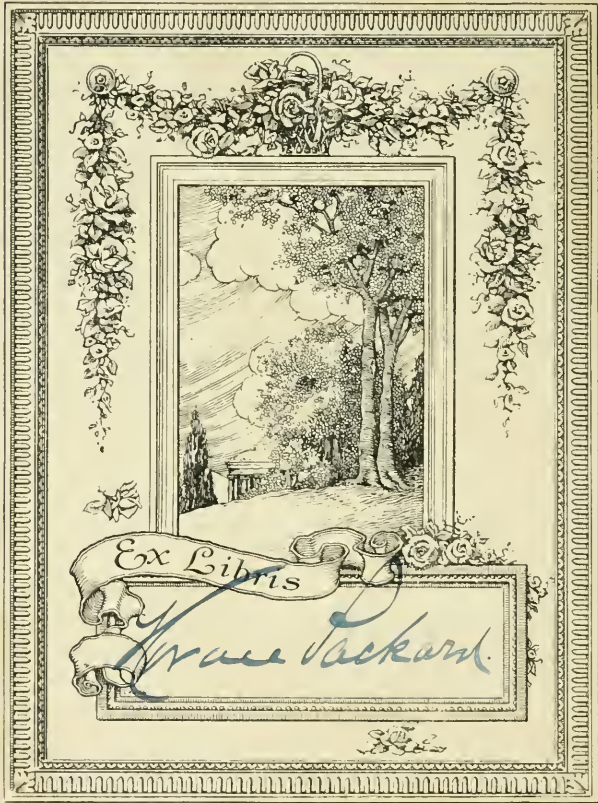 Ex Libris
Horace Packard.